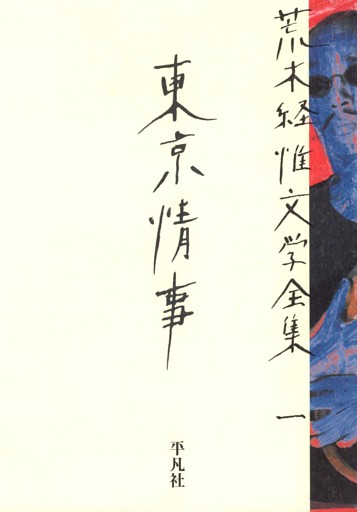 荒木経惟文学全集 一
東京情事
平凡社